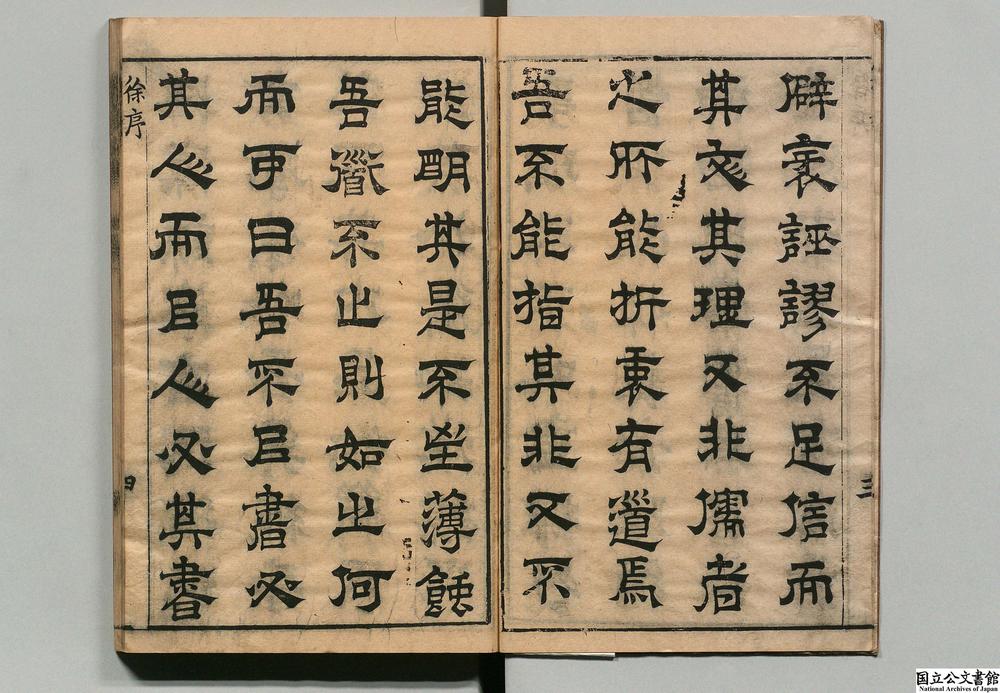 僻衺誣謬不足信而
其彣其理又非儒者
之所能折衷有道焉
吾不能指其非又不
三
能明其是不坐薄蝕
吾道不止則如之何
而可曰吾不㠯書必
其人而㠯人必其書
徐序
四